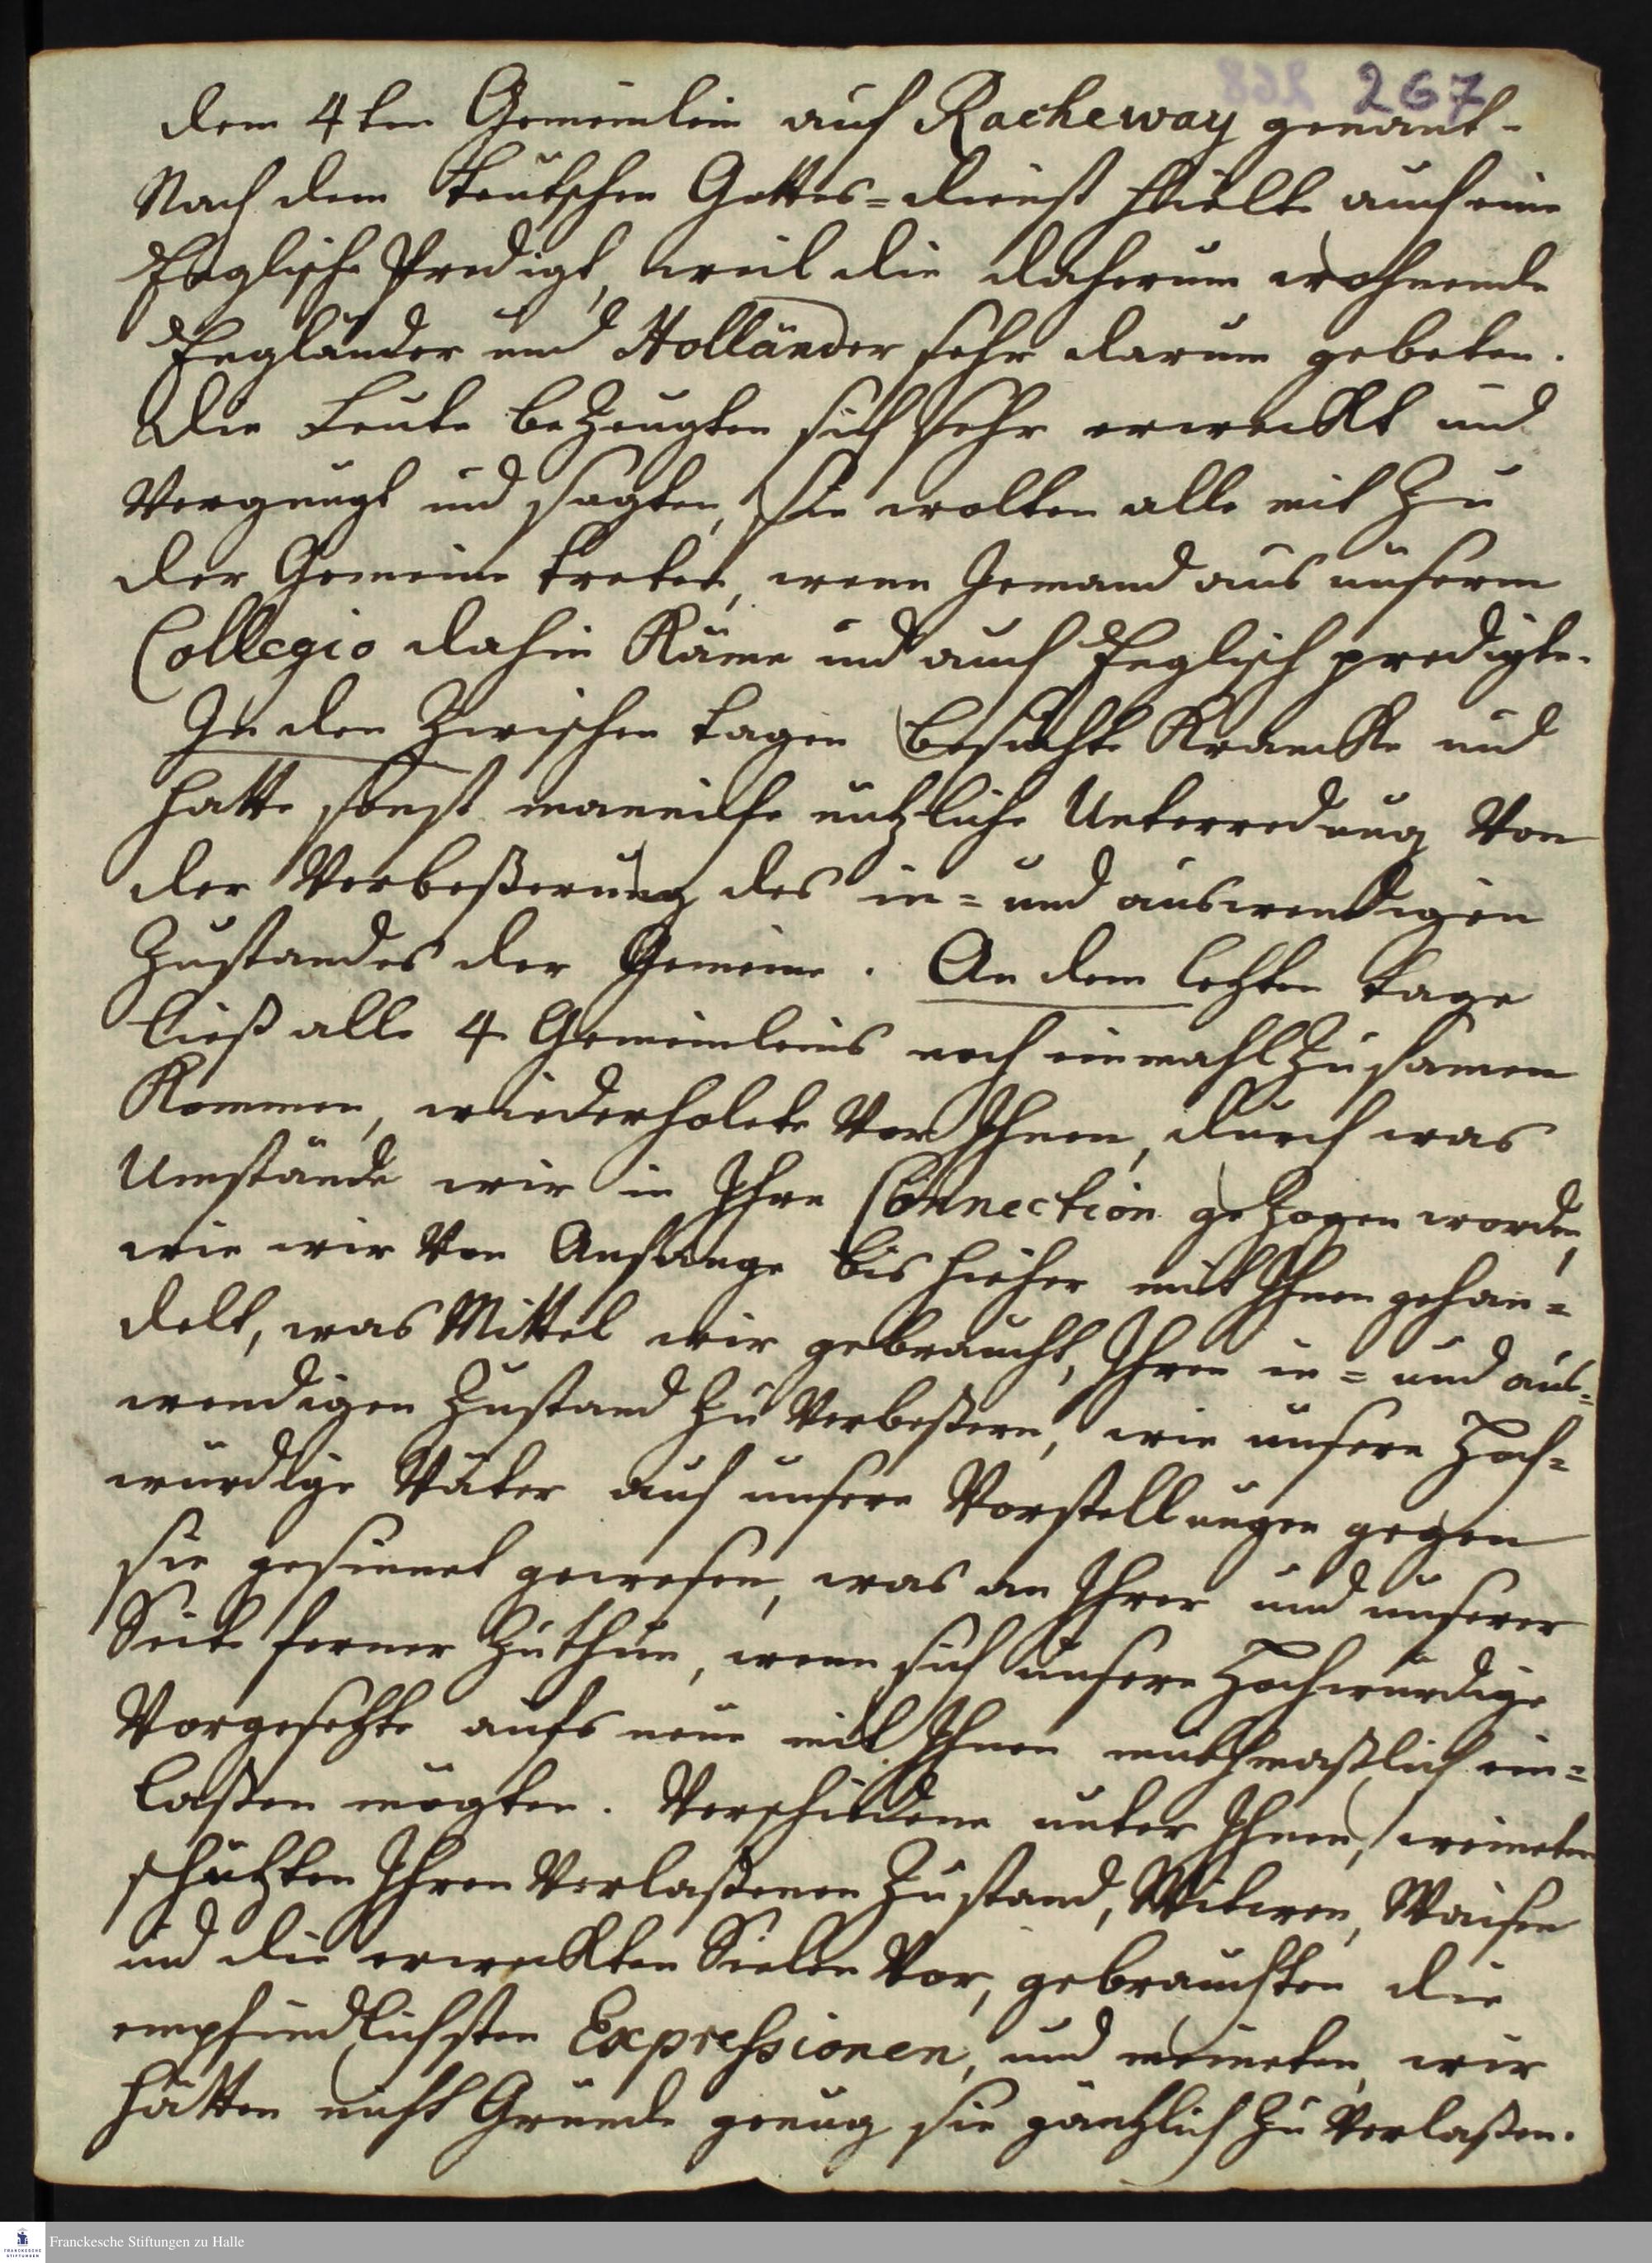 267
dem 4ten Gemeinlein auf Racheway genant.
Nach dem teutschen Gottes=dienst hielte auch eine
Englische Predigt, weil die daherum wohnende
Engländer und Holländer sehr darum gebeten.
Die Leute bezeugten sich sehr erweckt und
vergnügt und sagten, Sie wolten alle mit zu
der Gemeine treten, wenn Jemand aus unserm
Collegio dahin käme und auch Englisch predigte.
In den Zwischen tagen besuchte Krancke und
hatte sonst mannilche nützliche Unterredung von
der Verbeßerung des in= und auswendigen
Zustandes der Gemeine. An dem letzten tage
ließ alle 4 Gemeinleins noch einmahl zusamen
kommen, wiederholete vor Ihnen, durch was
Umstände wir in Ihre Connection gezogen worden,
wie wir von Anfange bis hieher mit Ihnen gehan=
delt, was Mittel wir gebraucht, Ihren in= und aus=
wendigen Zustand zu verbeßern, wie unsere Hoch=
würdige Väter auf unsere Vorstellungen gegen
sie gesinnet gewesen, was an Ihrer und unserer
Seite ferner zuthun, wenn sich unsere Hochwürdige
Vorgesetzte aufs neue mit Ihnen muthmaßlich ein=
laßen mögten. Verschiedene unter Ihnen, weineten
schützten Ihren verlaßenen Zustand, Witwen, Waisen
und die erweckten Seelen vor, gebrauchten die
empfindlichsten Expressionen, und meineten, wir
hätten nicht Gründe genug sie gäntzlich zu verlaßen.
Franckesche Stiftungen zu Halle
FRANCKESCHE
STIFTUNGEN